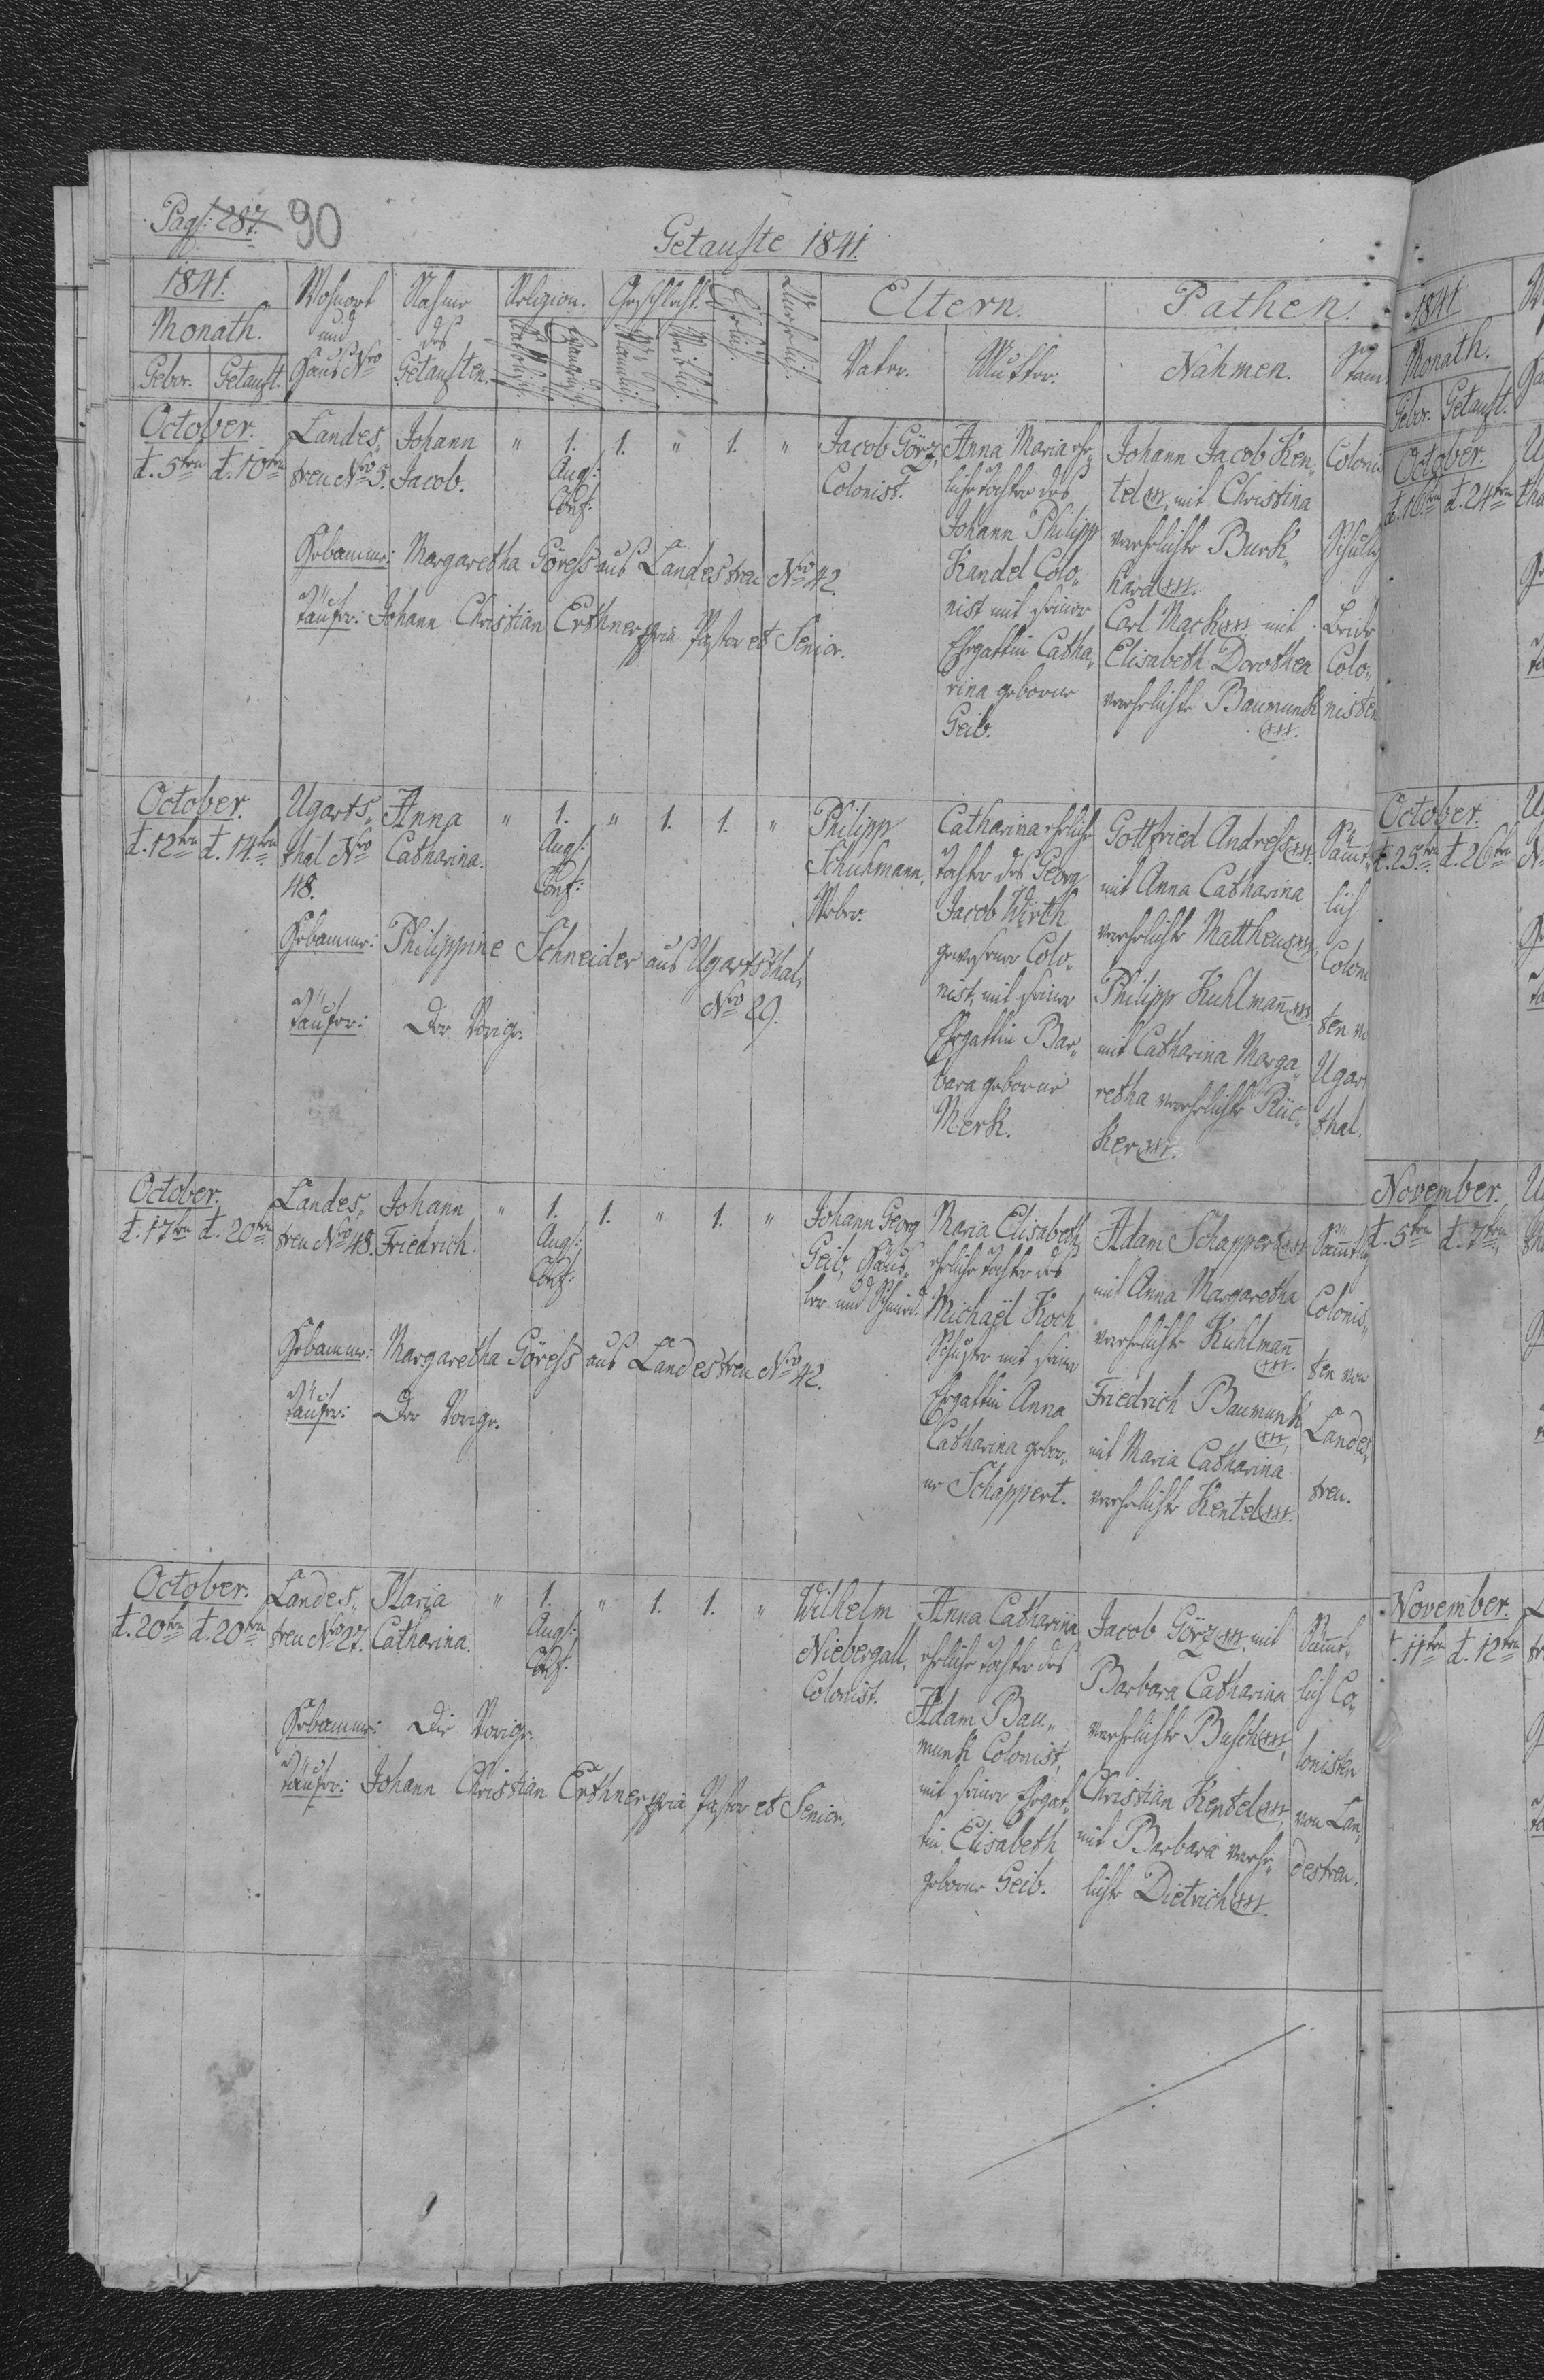 Pag: 287. 90
Getaufte 1841.
1841. Monath. Gebor. Getauft.
Wohnort und Haus Nro
Nahme des Getauften.
Religion. Katholisch. Evangelisch.
Geschlecht. Männlich. Weiblich.
Ehelich.
Unehelich.
Eltern. Vater. Mutter.
Pathen. Nahmen. Stand.
October.
d. 5ten d. 10ten
Landes„
treu Nro 5.
Johann
Jacob.
" 1. 1. " 1. "
Augs:
Conf:
Jacob Görz,
Colonist.
Anna Maria ehe„
liche Tochter des
Johann Philipp
Kandel Colo„
nist mit seiner
Ehegattin Catha„
rina geborne
Geib.
Johann Jacob Ken„
tel xxx, mit Christina
verehelichte Burk„
hard xxx.
Carl Mack xxx mit
Elisabeth Dorothea
verehelichte Baumunk
xxx.
Coloni
Beide
Colo„
nisten
Hebamme: Margaretha Göress aus Landestreu Nro 42.
Täufer: Johann Christian Erthner mpria Pastor et Senior.
October.
d. 12ten d. 14ten
Ugarts„
thal Nro
48.
Anna
Catharina.
" 1. " 1. 1. "
Augs:
Conf:
Philipp
Schuhmann,
Weber.
Catharina eheliche
Tochter des Georg
Jacob Wirth
gewesener Colo„
nist, mit seiner
Ehegattin Bar„
bara geborne
Merk.
Gottfried Andress xxx.
mit Anna Catharina
verehelichte Mattheus xxx,
Philipp Kuhlmañ xxx.
mit Catharina Marga„
retha verehelichte Rüc„
ker xxx.
Sämt„
lich
Coloni
ten v
Ugar
thal.
Hebamme: Philippine Schneider aus Ugartsthal,
Nro 29.
Täufer: Der Vorige.
October.
d. 17ten d. 20ten
Landes„
treu Nro 48.
Johann
Friedrich.
" 1. 1. " 1. "
Augs:
Conf:
Johann Georg
Geib, Häus„
ler und Schmied.
Maria Elisabeth
eheliche Tochter des
Michaël Koch
Schuster mit seiner
Ehegattin Anna
Catharina gebor„
ne Schappert.
Adam Schappert xxx
mit Anna Margaretha
verehelichte Kuhlmañ
xxx.
Friedrich Baumunk
xxx,
mit Maria Catharina
verehelichte Kentel xxx.
Sämtlich
Colonis„
ten von
Landes„
treu.
Hebamme: Margaretha Göress aus Landestreu Nro 42.
Täufer: Der Vorige.
October.
d. 20ten d. 20ten
Landes„
treu Nro 27.
Maria
Catharina.
" 1. " 1. 1. "
Augs:
Conf:
Wilhelm
Niebergall,
Colonist.
Anna Catharina
eheliche Tochter des
Adam Bau„
munk Colonist,
mit seiner Ehegat„
tin Elisabeth
geborne Geib.
Jacob Görz xxx, mit
Barbara Catharina
verehelichte Busch xxx,
Christian Kentel xxx,
mit Barbara verehe„
lichte Dietrich xxx.
Sämt„
lich Co„
lonisten
von Lan„
destreu.
Hebamme: Die Vorige.
Täufer: Johann Christian Erthner mpria Pastor et Senior.
1841
Monath.
Gebor. Getauft.
October.
d. 16ten d. 24ten
October.
d. 25ten d. 26ten
November.
d. 5ten d. 7ten
November.
d. 11ten d. 12ten